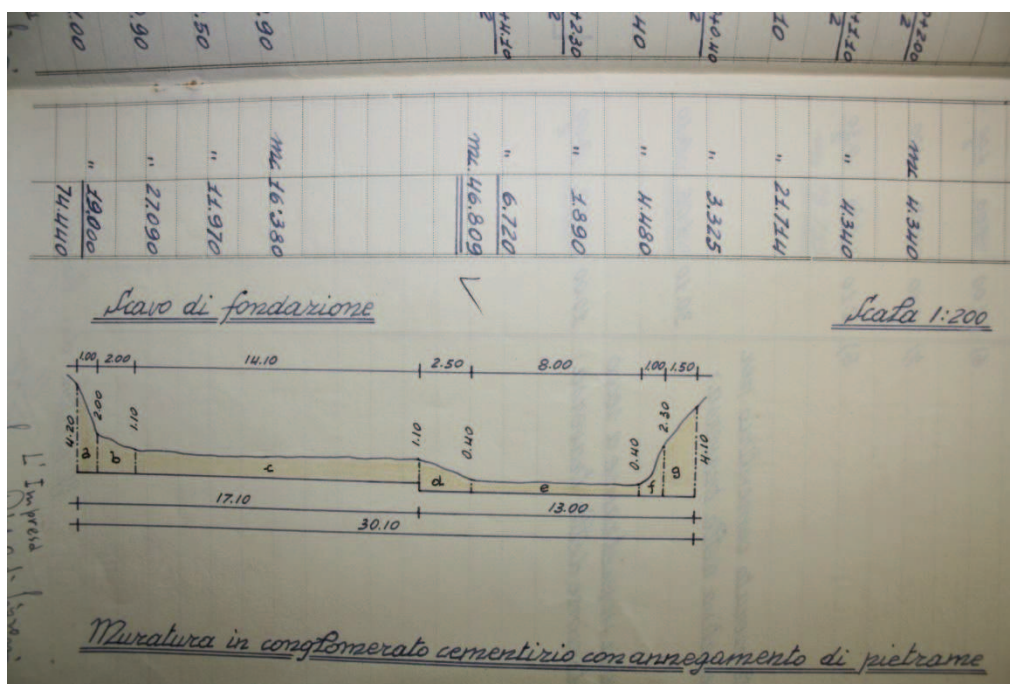 .00
.90
.50
.90
+4.10
2
+2.30
2
40
0+0.40
2
10
+1.10
2
0+2.00
2
mc. 4.340
" 4.340
" 21.714
" 3.325
" 4.480
" 1.890
" 6.720
mc. 46.809
mc 16.380
" 11.970
" 27.090
" 19.000
74.440
Scavo di fondazione
Scala 1:200
1.00 2.00 14.10 2.50 8.00 1.00 1.50
4.20 2.00 1.10 1.10 0.40 0.40 2.30 4.10
a b c d e f g
17.10 13.00
30.10
L'Impresa
Muratura in conglomerato cementizio con annegamento di pietrame